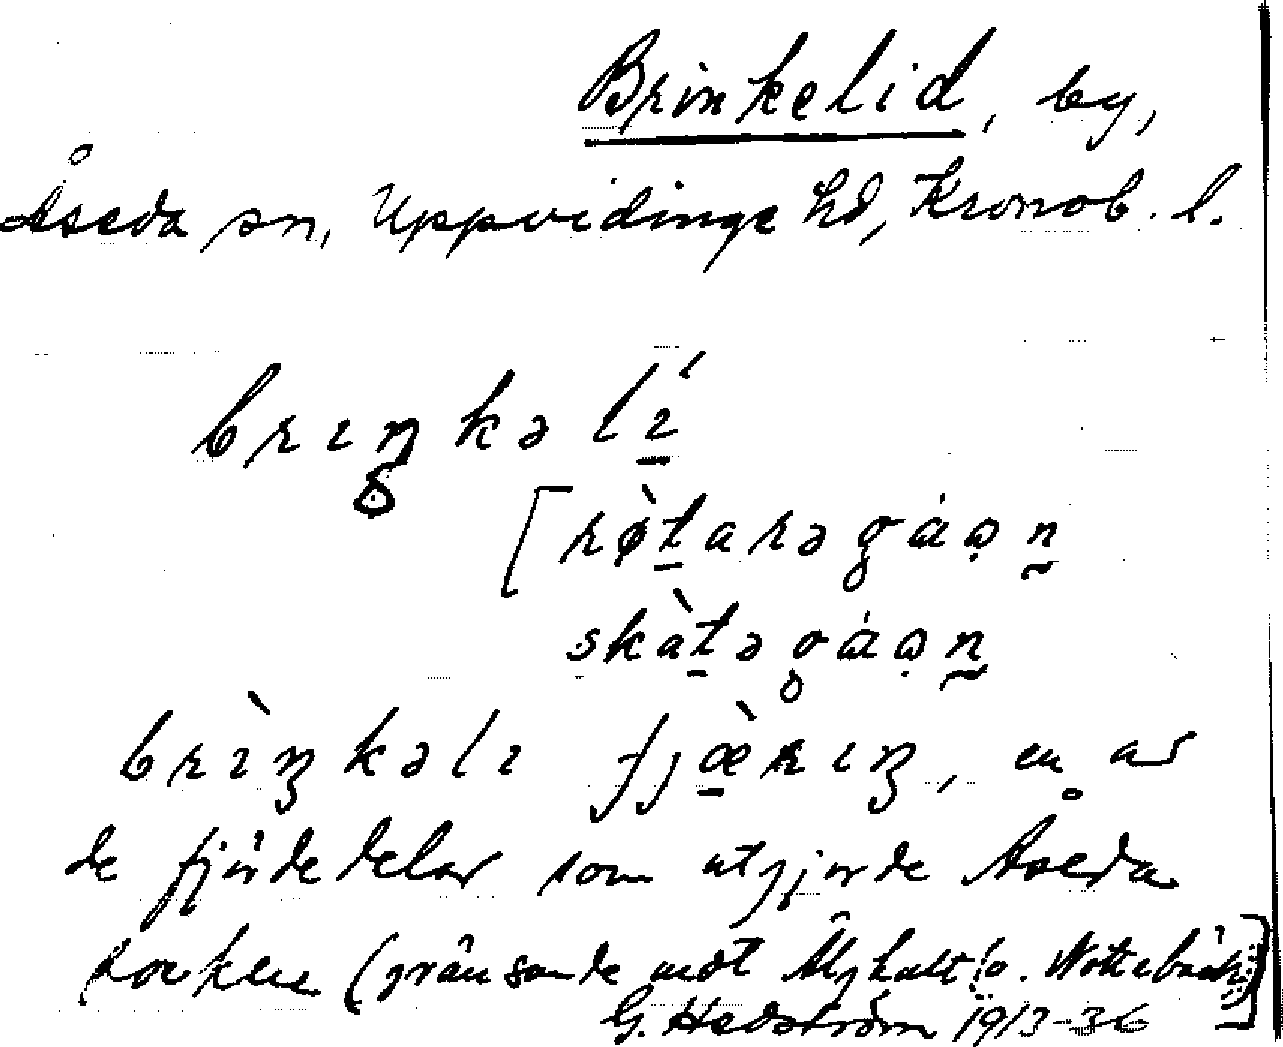 Brinkelid, by,
Åseda sn, Uppvidinge hd, Kronob. l.
brıŋkəlı́
[rø̀tarəgáən
skàtəgáən
brı̀ŋkəlı fjæ̀rıŋ, en av
de fjärdedelar som utgjorde Åseda
socken (gränsande mot Älghult o. Nottebäck)]
G. Hedström 1913-36